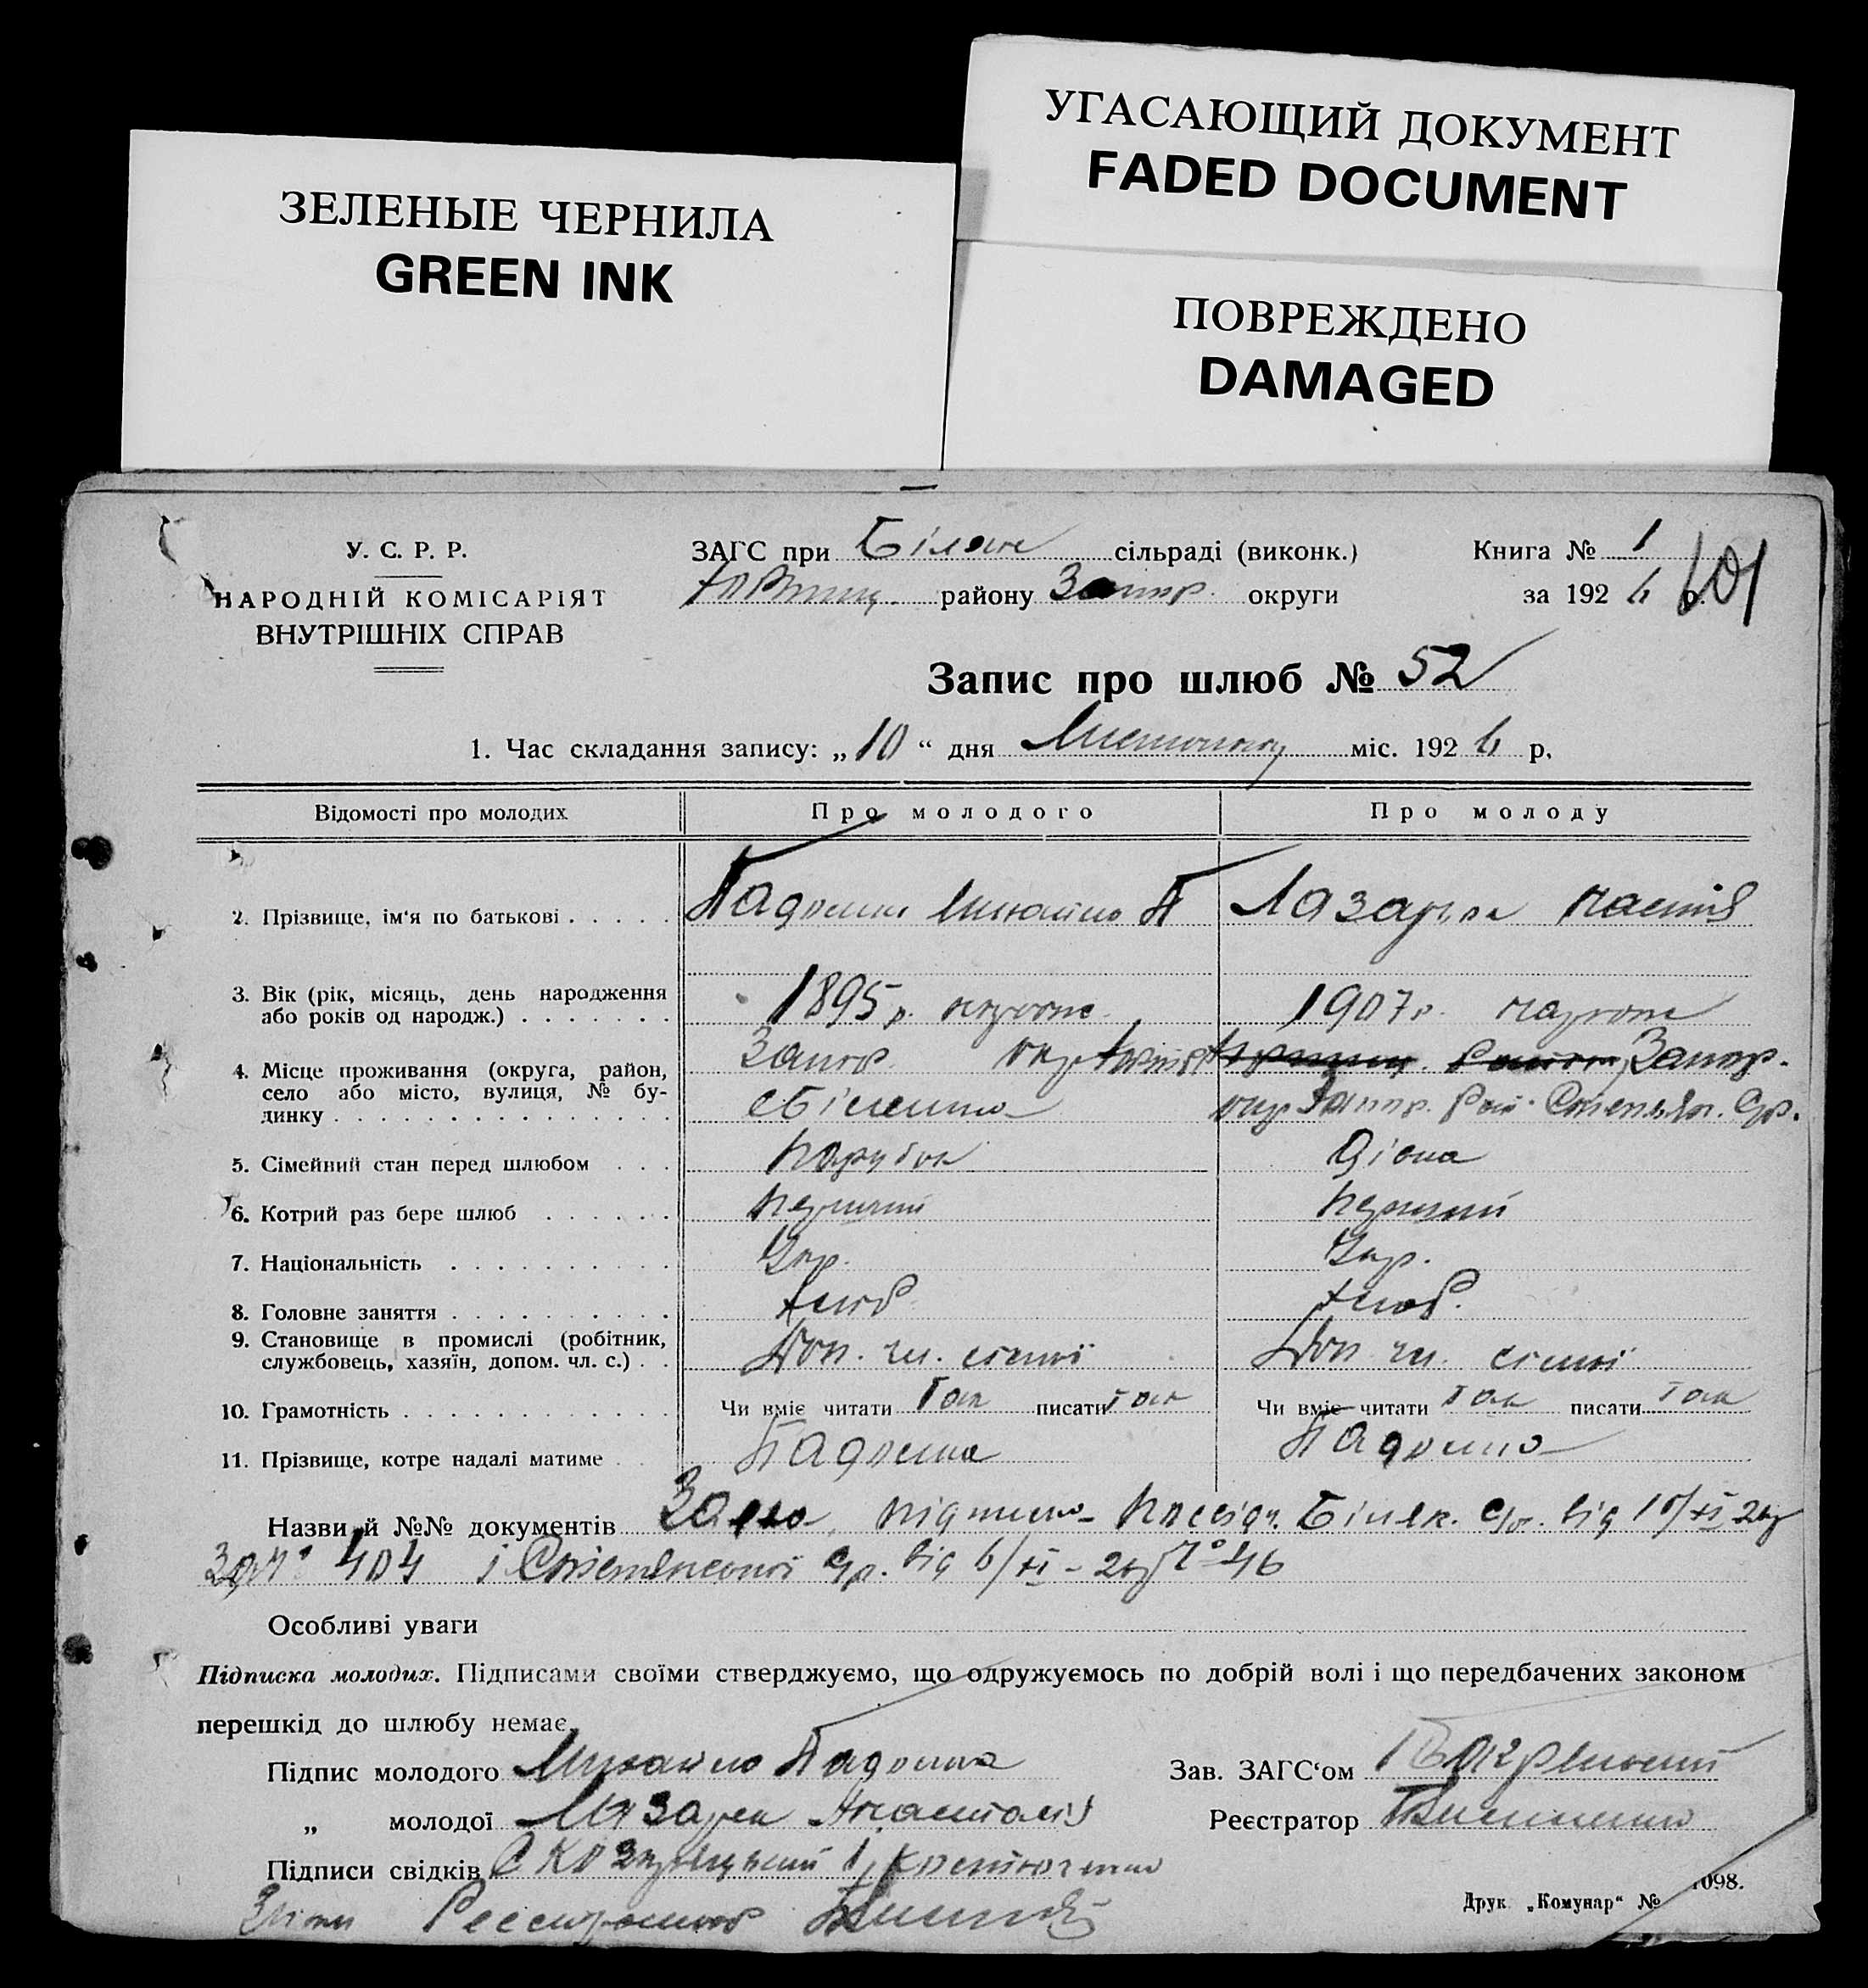 УГАСАЮЩИЙ ДОКУМЕНТ
FADED DOCUMENT
ЗЕЛЕНЫЕ ЧЕРНИЛА
GREEN INK
ПОВРЕЖДЕНО
DAMAGED
У. С. Р. Р.
НАРОДНІЙ КОМІСАРІЯТ
ВНУТРІШНІХ СПРАВ
ЗАГС при сільраді (виконк.)
району Запор. округи
Книга № 1
за 1926 р.
101
Запис про шлюб № 52
1. Час складання запису: „10“ дня Листопаду міс. 1926 р.
Відомості про молодих Про молодого Про молоду
2. Прізвище, ім'я по батькові . . . . . Михайло П Лазарєва
3. Вік (рік, місяць, день народження 1895 р. 1907 р.
або років од народж.) . . . . . . .
4. Місце проживання (округа, район, Запор. окр Запор.
село або місто, вулиця, № бу- окр Запор. Рай.
динку . . . . . . . . . . . . . .
5. Сімейний стан перед шлюбом . . . Парубок Дівка
6. Котрий раз бере шлюб . . . . . . Перший Перший
7. Національність . . . . . . . . . . Укр. Укр.
8. Головне заняття . . . . . . . . . . Хліб. Хліб.
9. Становище в промислі (робітник, Доп. чл. сімьї Доп. чл. сімьї
службовець, хазяїн, допом. чл. с.) . .
10. Грамотність . . . . . . . . . . . . Чи вміє читати Так писати Так Чи вміє читати Так писати Так
11. Прізвище, котре надалі матиме . .
Назви й №№ документів Заява, підписка Посвідч. Біленк. С/р. від 10/XI 26р
за № 404 і С/р. від 6/XI-26р № 46
Особливі уваги
Підписка молодих. Підписами своїми стверджуємо, що одружуємось по добрій волі і що передбачених законом
перешкід до шлюбу немає.
Підпис молодого Михайло
Зав. ЗАГС‘ом
„ молодої Анастасія
Реєстратор
Підписи свідків
1098.
Друк „Комунар“ №